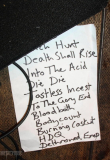 Hunt
Death Shall Rise
Into The Acid
Die Die
Tasteless Incest
To The Gory End
Bloodbath
Bodycount
Burning Casket
HDG
Delt